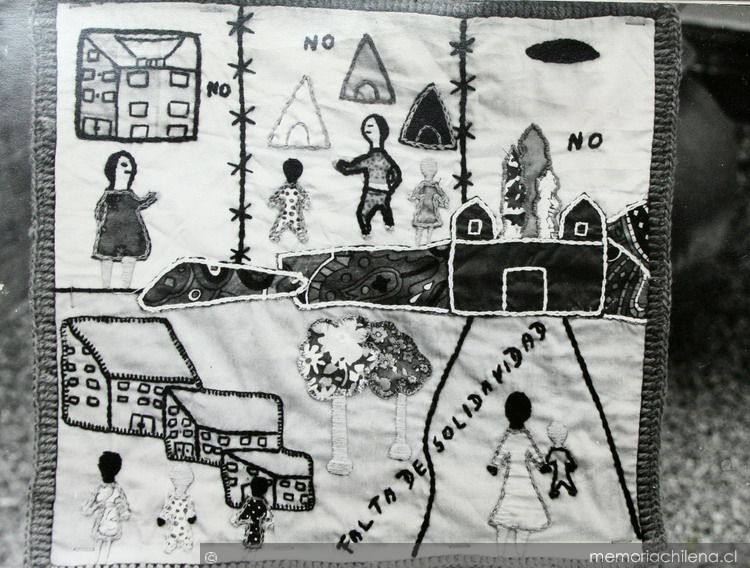 NO
NO
NO
FALTA DE SOLIDAVIDAD
© memoriachilena.cl